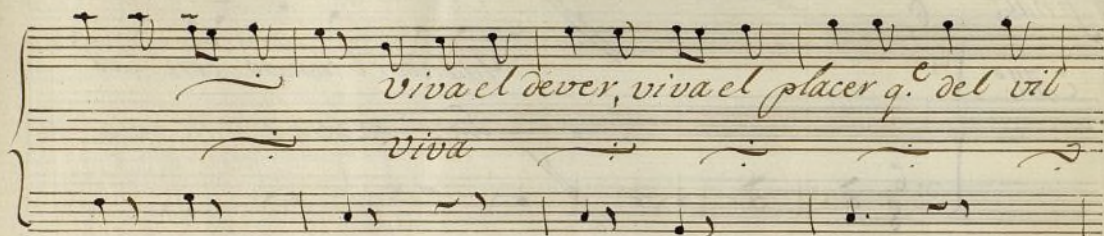 viva el dever, viva el placer q.e del vil
viva